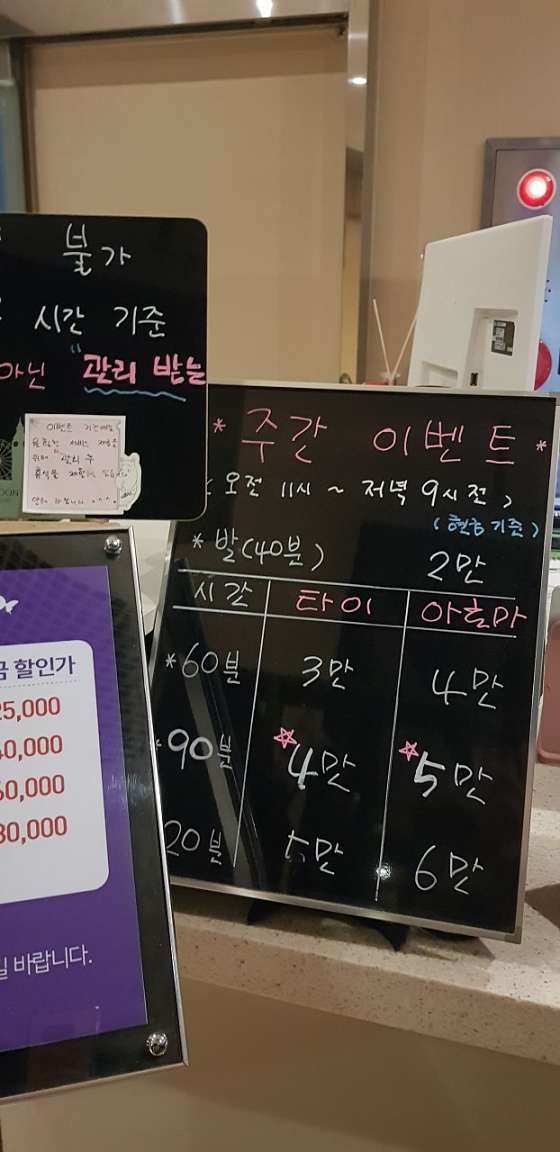 불가
시간 기준
아닌 "관리 받는
이벤트
서비스
관리 후
* 주간 이벤트 *
( 오전 11시 ~ 저녁 9시전 )
( 현금 기준 )
* 발(40분) 2만
시간 타이 아로마
*60분 3만 4만
*90분 4만 5만
20분 5만 6만
금 할인가
25,000
40,000
60,000
80,000
바랍니다.